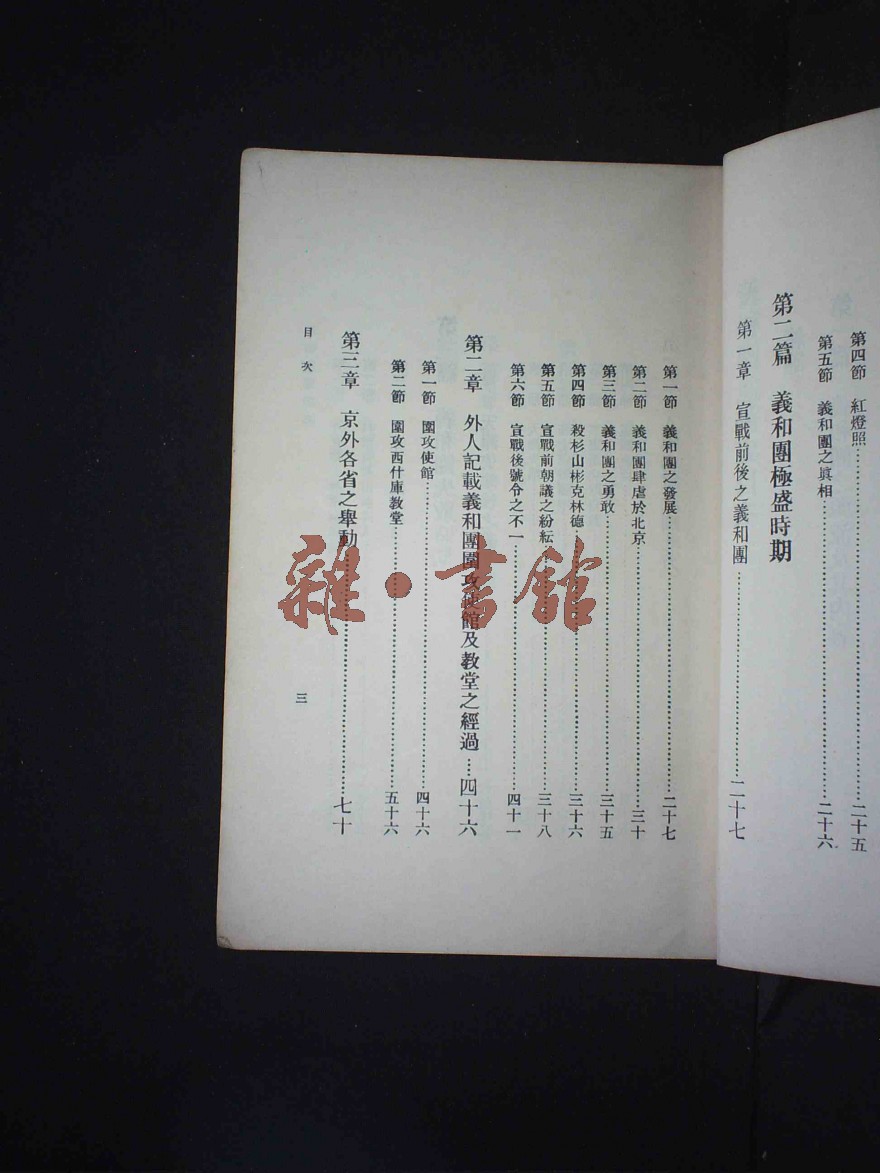 第四節　紅燈照………二十五
第五節　義和團之眞相………二十六
第二篇　義和團極盛時期
第一章　宣戰前後之義和團………二十七
第一節　義和團之發展………二十七
第二節　義和團肆虐於北京………三十
第三節　義和團之勇敢………三十五
第四節　殺杉山彬克林德………三十六
第五節　宣戰前朝議之紛紜………三十八
第六節　宣戰後號令之不一………四十一
第二章　外人記載義和團圍攻使館及教堂之經過…四十六
第一節　圍攻使館………四十六
第二節　圍攻西什庫教堂………五十六
第三章　京外各省之舉動………七十
目次
三
雜·書館